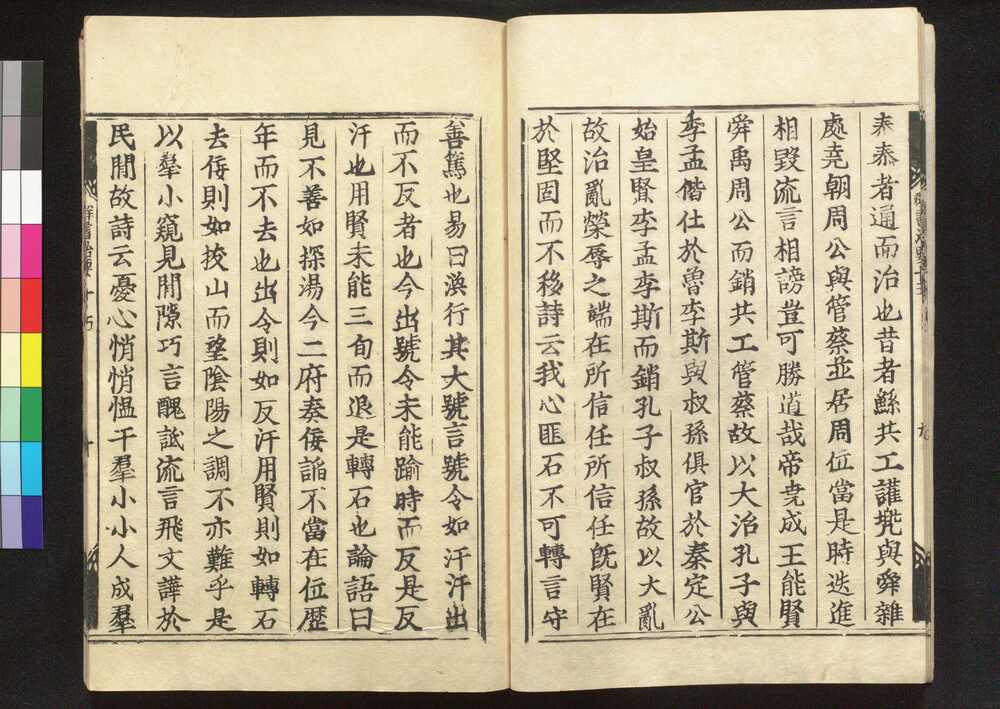 泰泰者通而治也昔者鯀共工讙兜與舜雜
處堯朝周公與管蔡並居周位當是時迭進
相毀流言相謗豈可勝道哉帝堯成王能賢
舜禹周公而銷共工管蔡故以大治孔子與
季孟偕仕於魯李斯與叔孫俱官於秦定公
始皇賢季孟李斯而銷孔子叔孫故以大亂
故治亂榮辱之端在所信任所信任既賢在
於堅固而不移詩云我心匪石不可轉言守
善篤也易曰渙行其大號言號令如汗汗出
而不反者也今出號令未能踰時而反是反
汗也用賢未能三旬而退是轉石也論語曰
見不善如探湯今二府奏佞諂不當在位歷
年而不去也出令則如反汗用賢則如轉石
去佞則如拔山而望陰陽之調不亦難乎是
以羣小窺見間隙巧言醜詆流言飛文譁於
民間故詩云憂心悄悄慍于羣小小人成羣
群書治要 十五
十